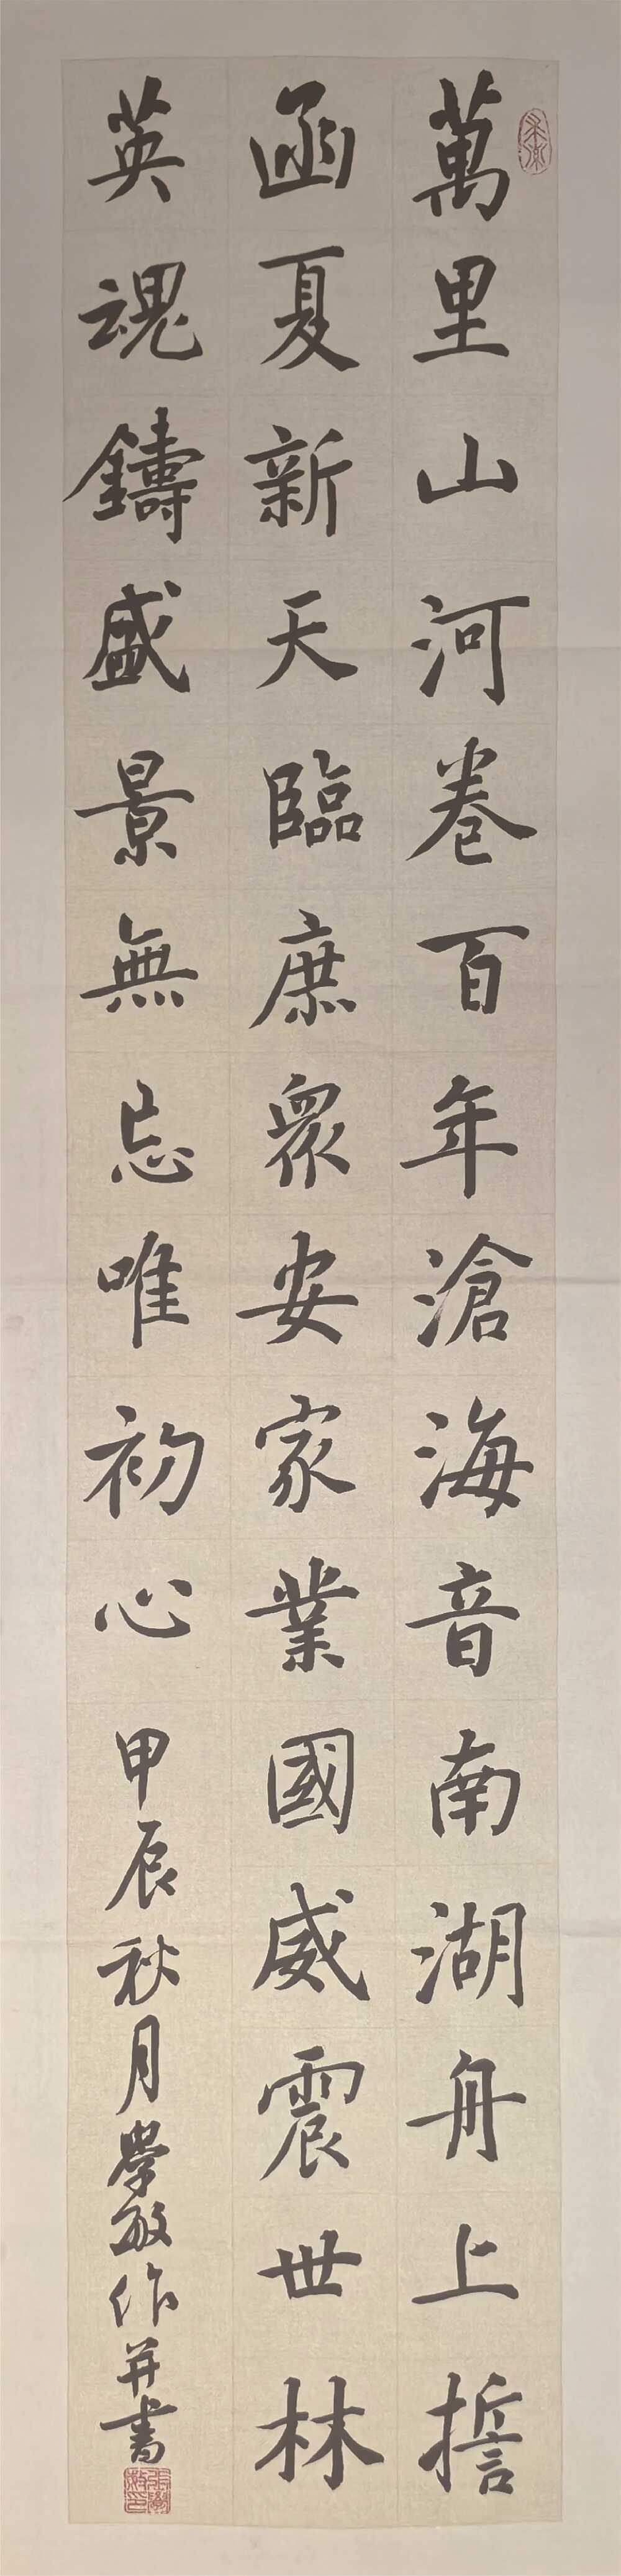 萬里山河卷百年滄海音南湖舟上誓
函夏新天臨庶眾安家業國威震世林
英魂鑄盛景無忘唯初心甲辰秋月學敏作并書